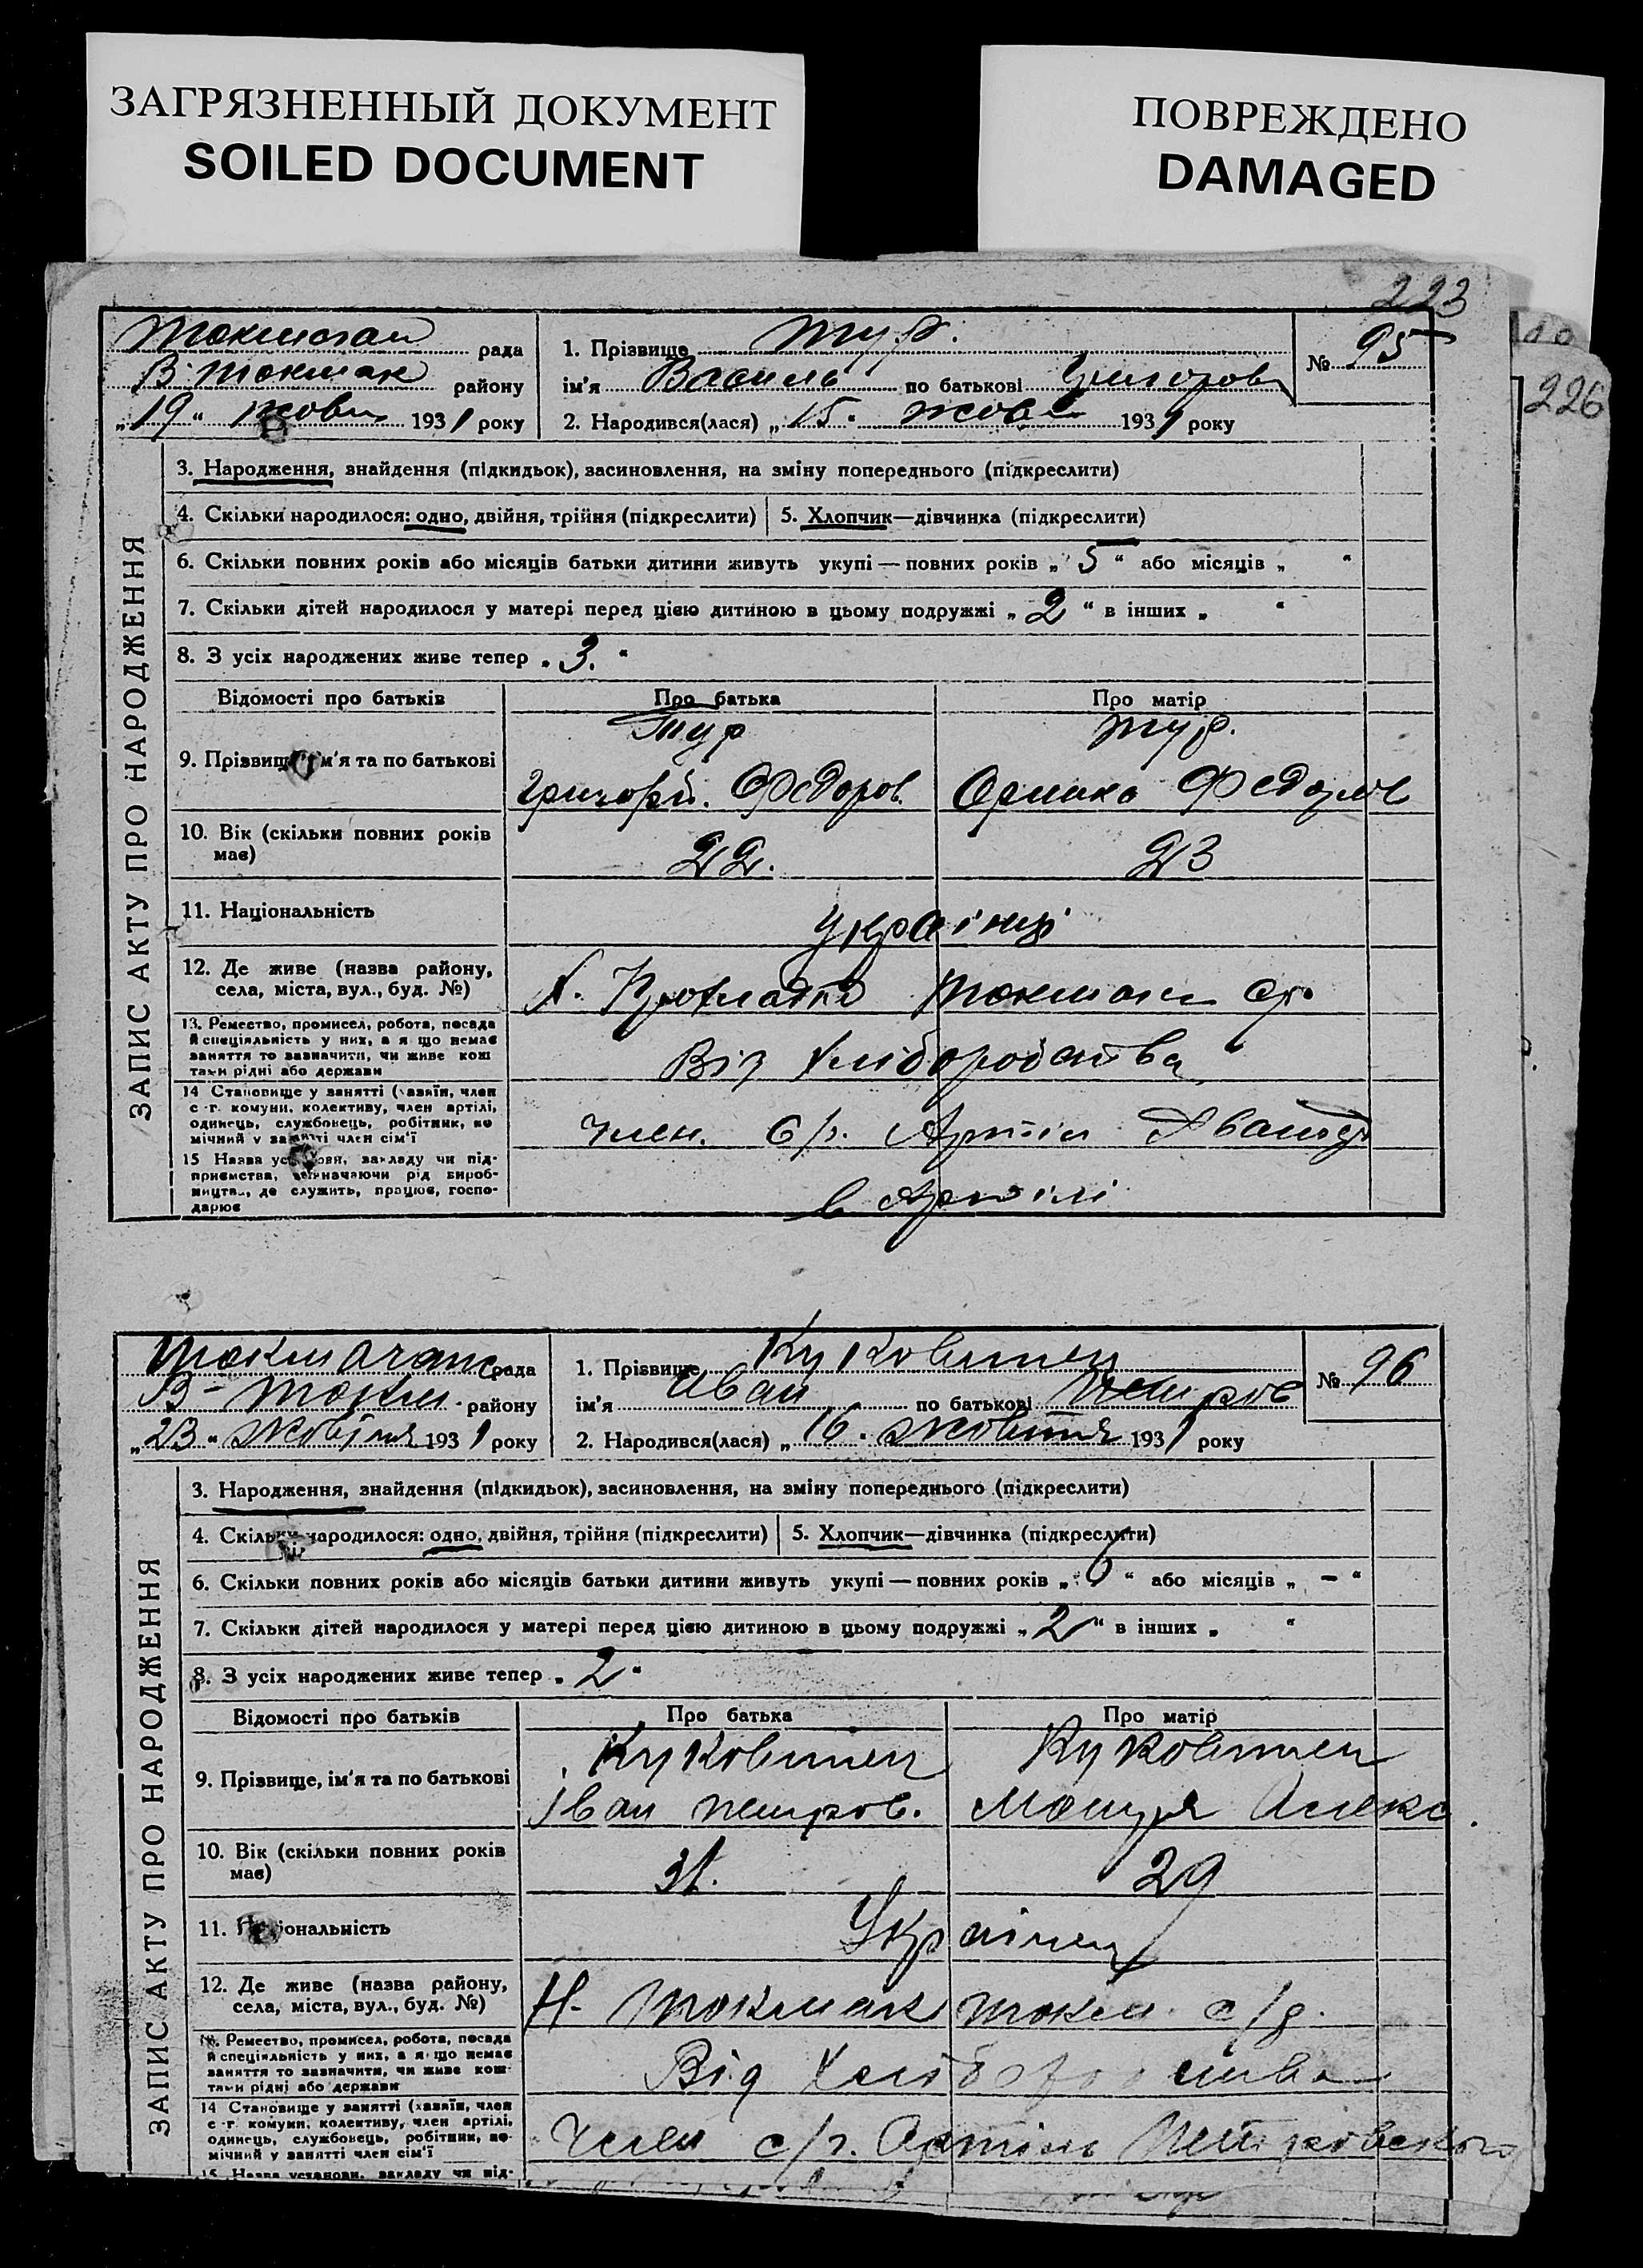 ЗАГРЯЗНЕННЫЙ ДОКУМЕНТ
SOILED DOCUMENT
ПОВРЕЖДЕНО
DAMAGED
223
226
рада
В. Токмак району
„19“ жовт 1931 року
1. Прізвище Тур.
ім'я Василь по батькові Григоров
2. Народився(лася) „15“ жовт 1931 року
№ 95
ЗАПИС АКТУ ПРО НАРОДЖЕННЯ
3. Народження, знайдення (підкидьок), засиновлення, на зміну попереднього (підкреслити)
4. Скільки народилося: одно, двійня, трійня (підкреслити)
5. Хлопчик—дівчинка (підкреслити)
6. Скільки повних років або місяців батьки дитини живуть укупі — повних років „5“ або місяців „ “
7. Скільки дітей народилося у матері перед цією дитиною в цьому подружжі „2“ в інших „ “
8. З усіх народжених живе тепер „3.“
Відомості про батьків
Про батька
Про матір
9. Прізвище, ім'я та по батькові
Тур
Григорій. Федоров.
Тур.
Федоров
10. Вік (скільки повних років має)
22.
23
11. Національність
Українці
12. Де живе (назва району, села, міста, вул., буд. №)
13. Ремество, промисел, робота, посада
й спеціяльність у них, а якщо немає
заняття то зазначити, чи живе кош
тами рідні або держави
Від хліборобства
14 Становище у занятті (хазяїн, член
с.-г. комуни, колективу, член артілі,
одинець, службовець, робітник, по
мічний у занятті член сім'ї
Член. с/г. Артіл
15 Назва установи, закладу чи під-
приємства, зазначаючи рід вироб-
ництва, де служить, працює, госпо-
дарює
в Артілі
рада
В-Токм. району
„23“ Жовтня 1931 року
1. Прізвище
ім'я Іван по батькові
2. Народився(лася) „16“ жовтня 1931 року
№ 96
ЗАПИС АКТУ ПРО НАРОДЖЕННЯ
3. Народження, знайдення (підкидьок), засиновлення, на зміну попереднього (підкреслити)
4. Скільки народилося: одно, двійня, трійня (підкреслити)
5. Хлопчик—дівчинка (підкреслити)
6. Скільки повних років або місяців батьки дитини живуть укупі — повних років „6“ або місяців „–“
7. Скільки дітей народилося у матері перед цією дитиною в цьому подружжі „2“ в інших „ “
8. З усіх народжених живе тепер „2“
Відомості про батьків
Про батька
Про матір
9. Прізвище, ім'я та по батькові
Іван Петров.
Алекс.
10. Вік (скільки повних років має)
31.
29
11. Національність
12. Де живе (назва району, села, міста, вул., буд. №)
Н. Токмак Токм. с/р.
13. Ремество, промисел, робота, посада
й спеціяльність у них, а якщо немає
заняття то зазначити, чи живе кош
тами рідні або держави
Від хліборобства
14 Становище у занятті (хазяїн, член
с.-г. комуни, колективу, член артілі,
одинець, службовець, робітник, по-
мічний у занятті член сім'ї
Член с/г. Артіль Петровського
15 Назва установи, закладу чи під-